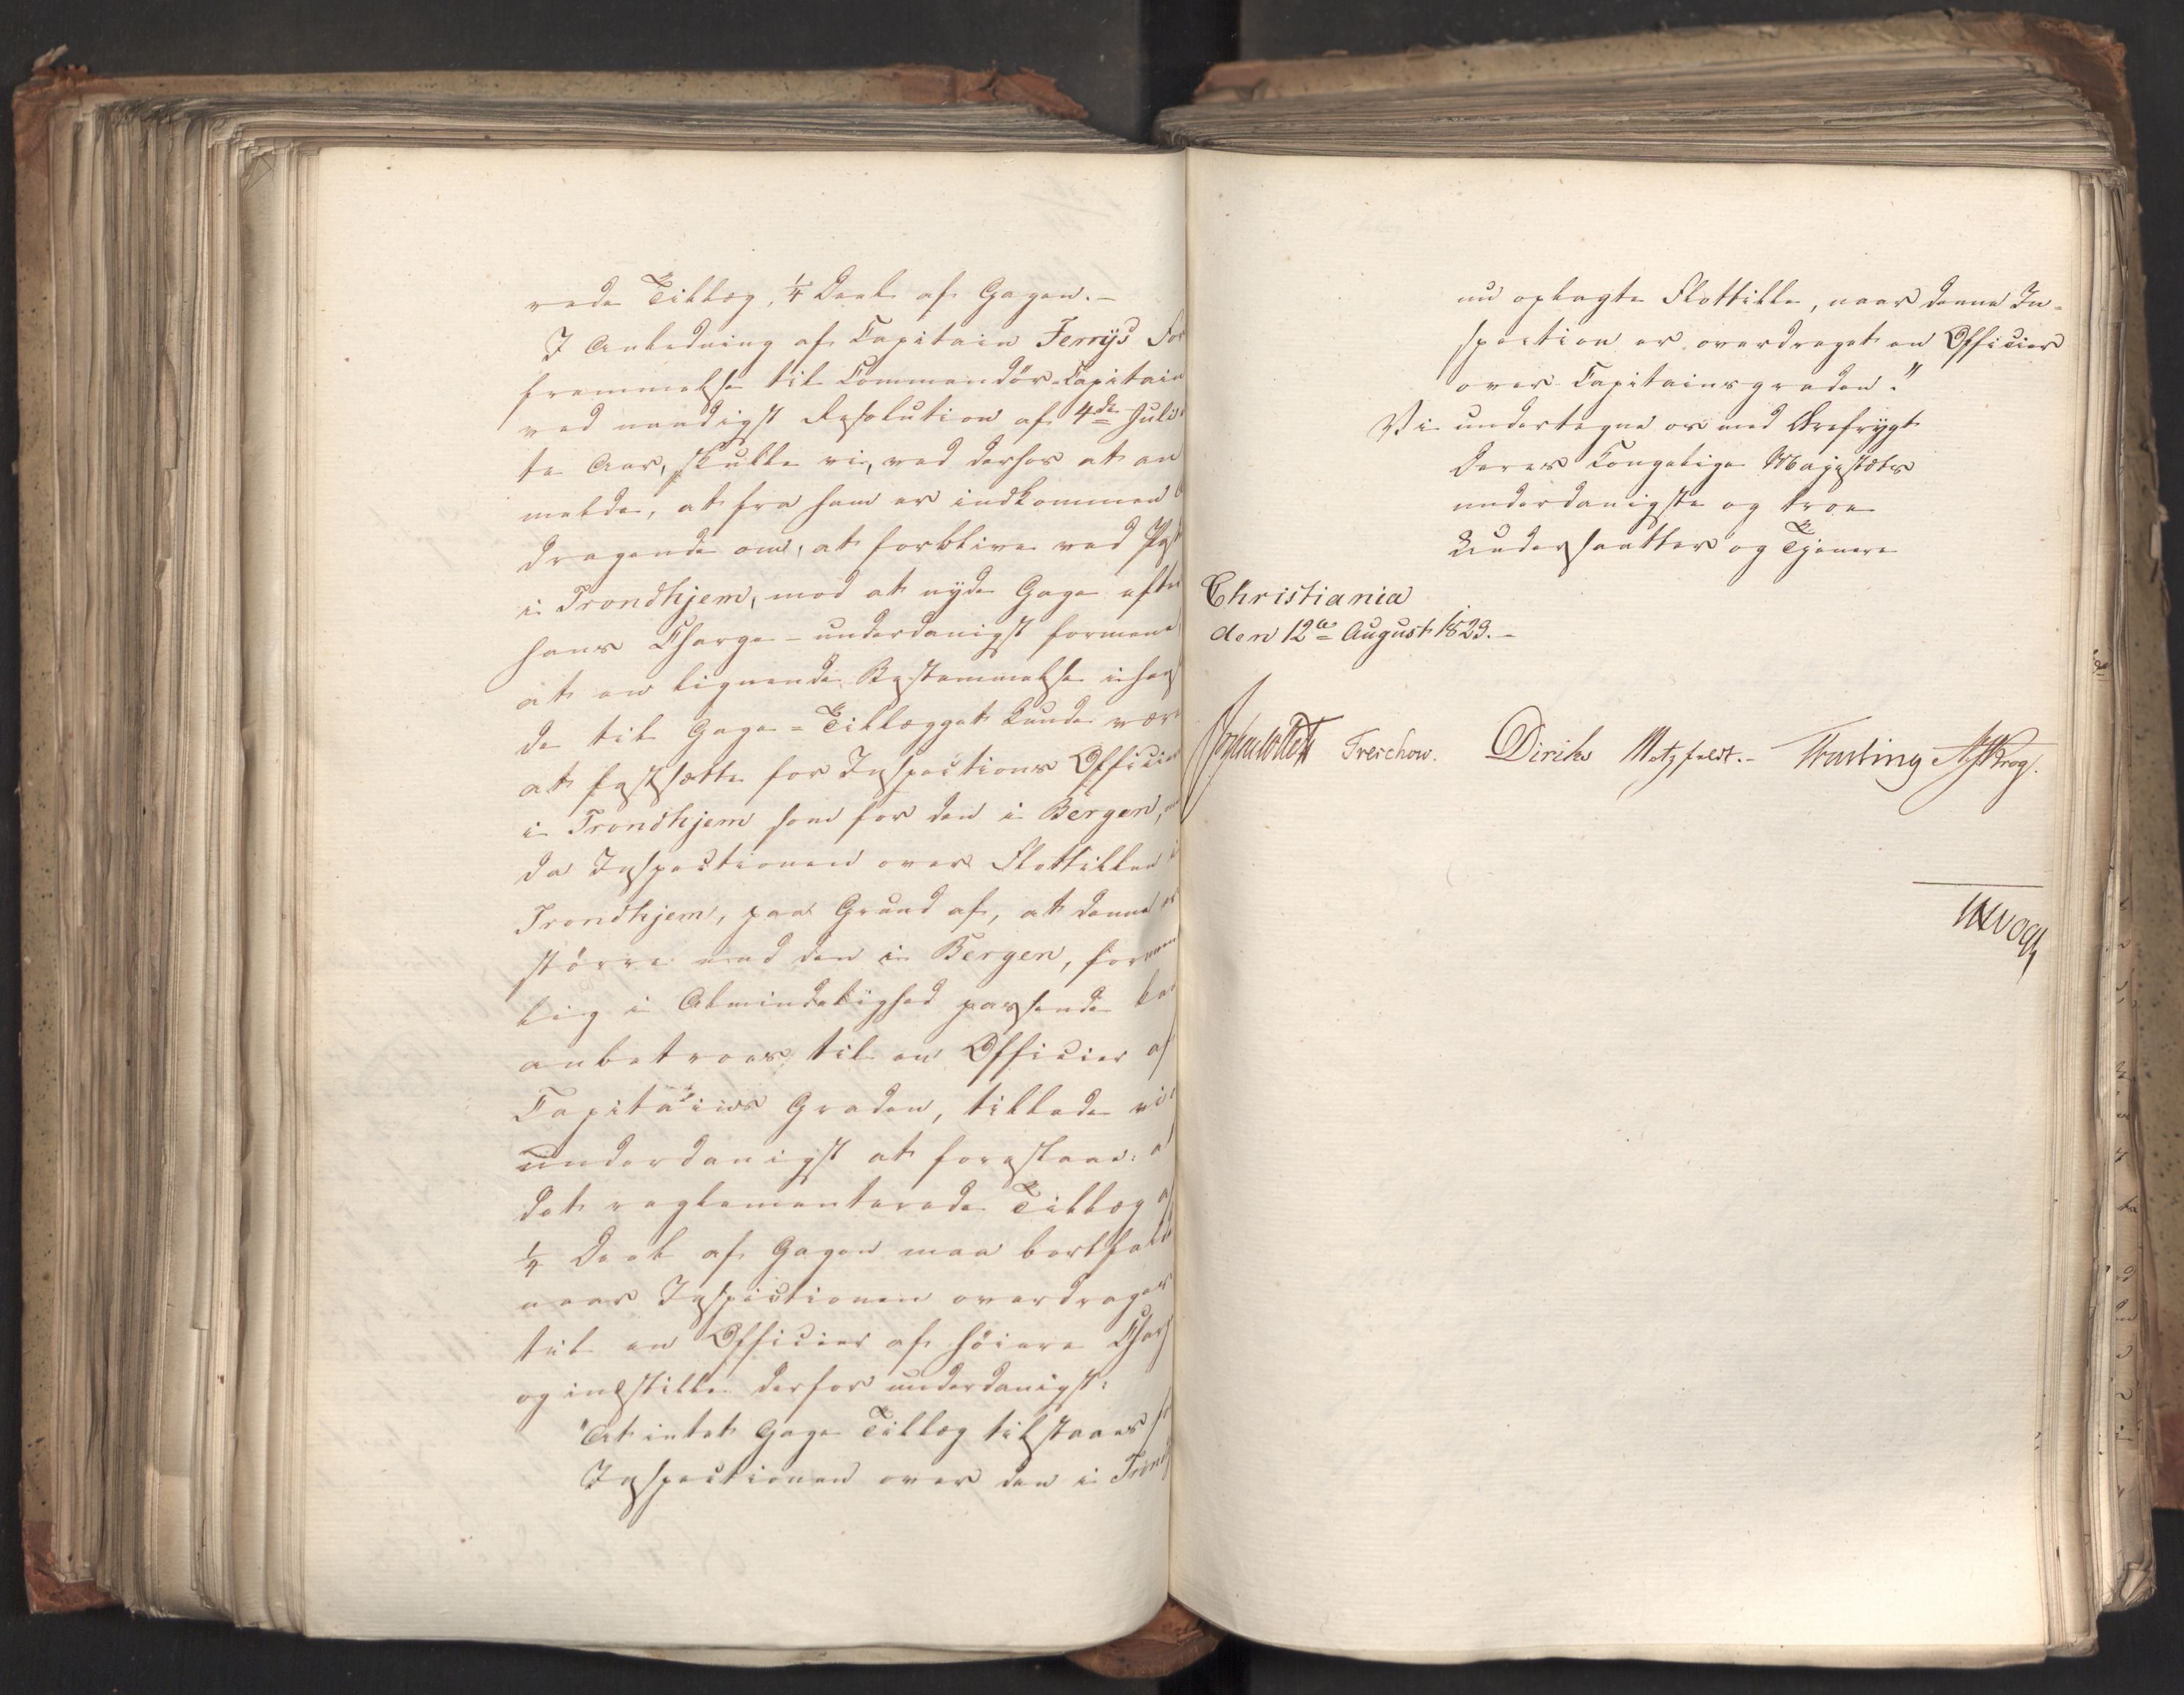 rede Tillæg, 1/4 Deel af Gagen. -
I Anledning af Capitain Ferrys For
fremmelse til Commandör-Capitain
ved naadigst Resolution af 4de Juli
te Aar, skulle vi, ved derhos at an
melde, at fra ham er indkommen
dragende om, at forblive ved
i Trondhjem, mod at nyde Gage efter
hans Charge - underdanigst formene
at en lignende Bestemmelse i hens
de til Gage-Tillægget kunde være
at fastsætte for Inspections Officier
i Trondhjem som for den i Bergen,
da Inspectionen over Flottillen i
Trondhjem, paa Grund af, at denne er
större end den i Bergen, formeen
lig i Almindelighed passende kan
anbetroes til en Officier af
Capitains Graden, tillade vi
underdanigst at foreslaae: at
det reglementerede Tillæg af
1/4 Deel af Gagen maa bortfalde
naar Inspectionen overdrages
til en Officier af höiere Charg
og indstille derfor underdanigst:
"At intet Gage Tillæg tilstaaes for
Inspectionen over den i Trondh
nu oplagte Flottille, naar denne In-
spection er overdraget en Officier
over Capitainsgraden."
Vi undertegne os med Ærefrygt
Deres Kongelige Majestæts
underdanigste og troe
Undersaatter og Tjenere
Christiania
den 12te August 1823. -
Treschow. Diriks Motzfeldt. - Krog.
Vogt